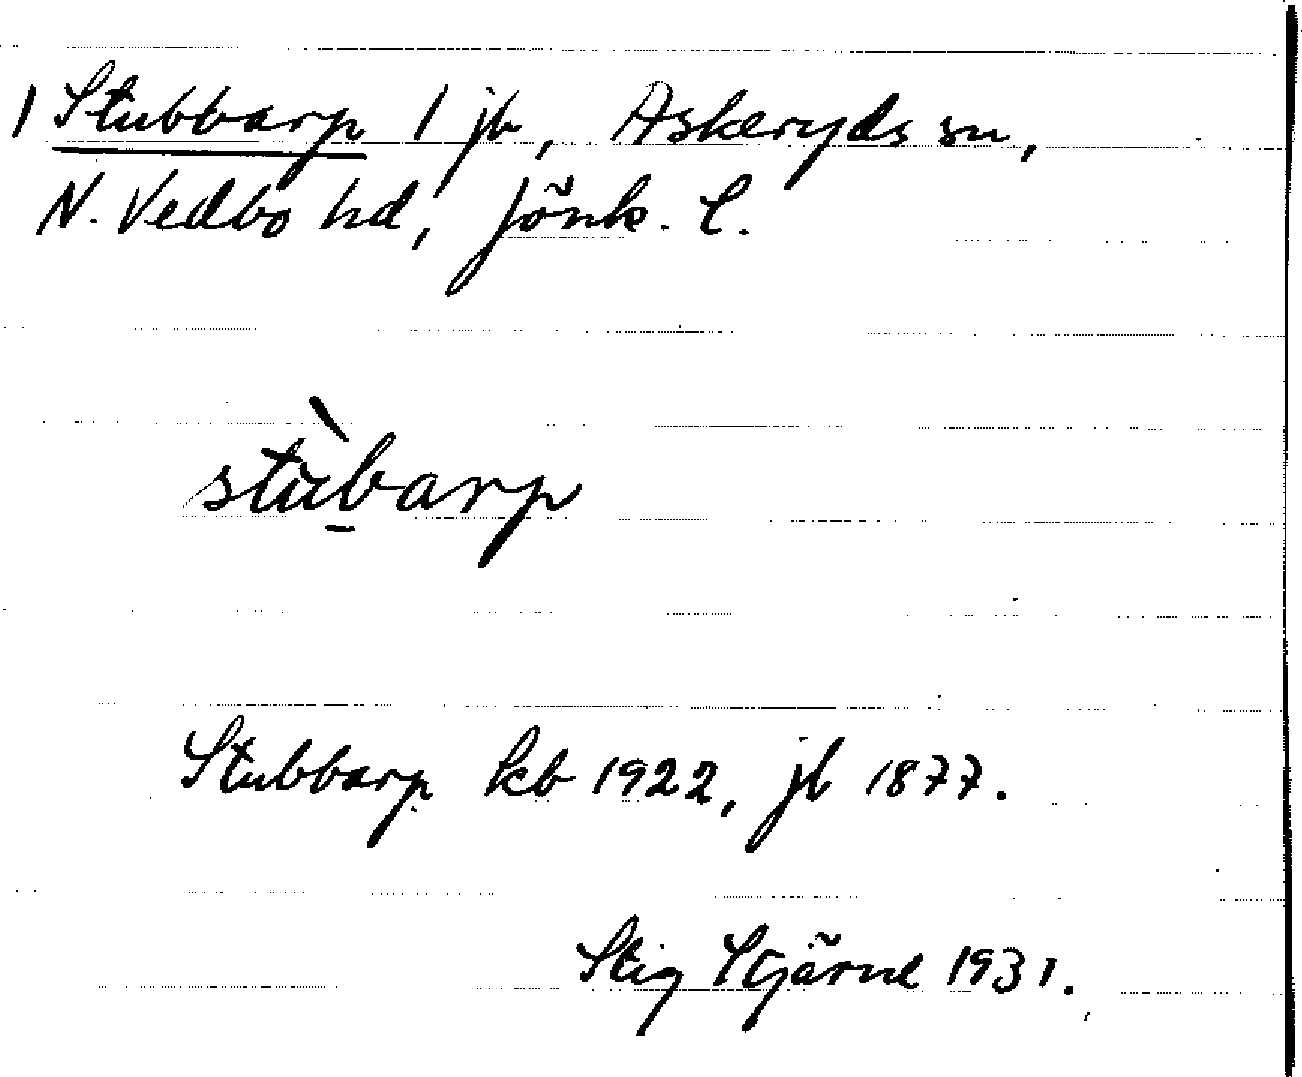 1 Stubbarp 1 jb, Askeryds sn,
N. Vedbo hd, Jönk. l.
stùb̠arp
Stubbarp kb 1922, jb 1877.
Stig Stjärne 1931.